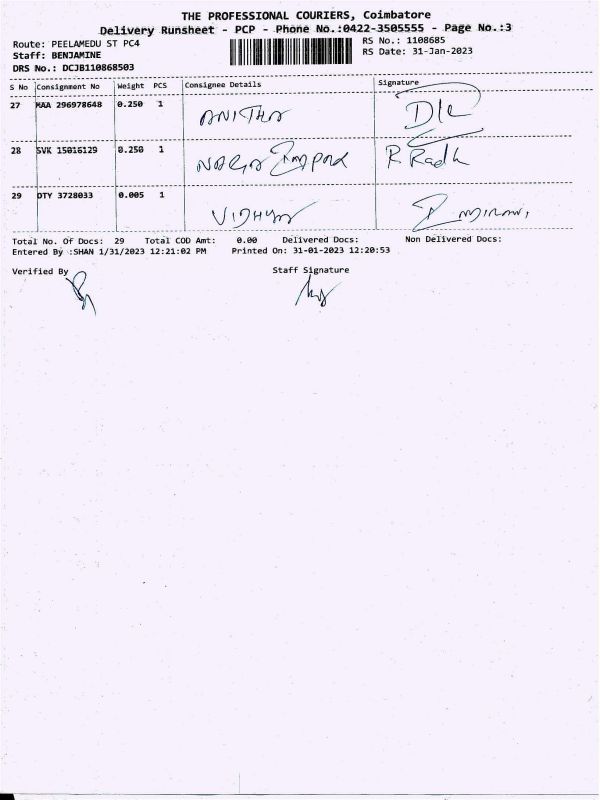 THE PROFESSIONAL COURIERS, Coimbatore
Delivery Runsheet - PCP - Phone No.:0422-3505555 - Page No.:3
Route: PEELAMEDU ST PC4
RS No.: 1108685
Staff: BENJAMINE
RS Date: 31-Jan-2023
DRS No.: DCJB110868503
S No Consignment No Weight PCS Consignee Details Signature
27 MAA 296978648 0.250 1 ANITHA
28 SVK 15016129 0.250 1 R Radh
29 DTY 3728033 0.005 1 VIDHYA
Total No. Of Docs: 29 Total COD Amt: 0.00 Delivered Docs: Non Delivered Docs:
Entered By :SHAN 1/31/2023 12:21:02 PM Printed On: 31-01-2023 12:20:53
Verified By Staff Signature